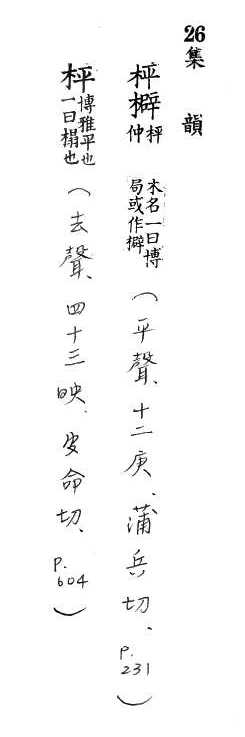 26集韻
枰㭽枰仲木名一曰博局或作㭽(平聲、十二庚、蒲兵切、P.231)
枰博雅平也一曰榻也(去聲、四十三映、皮命切、P.604)